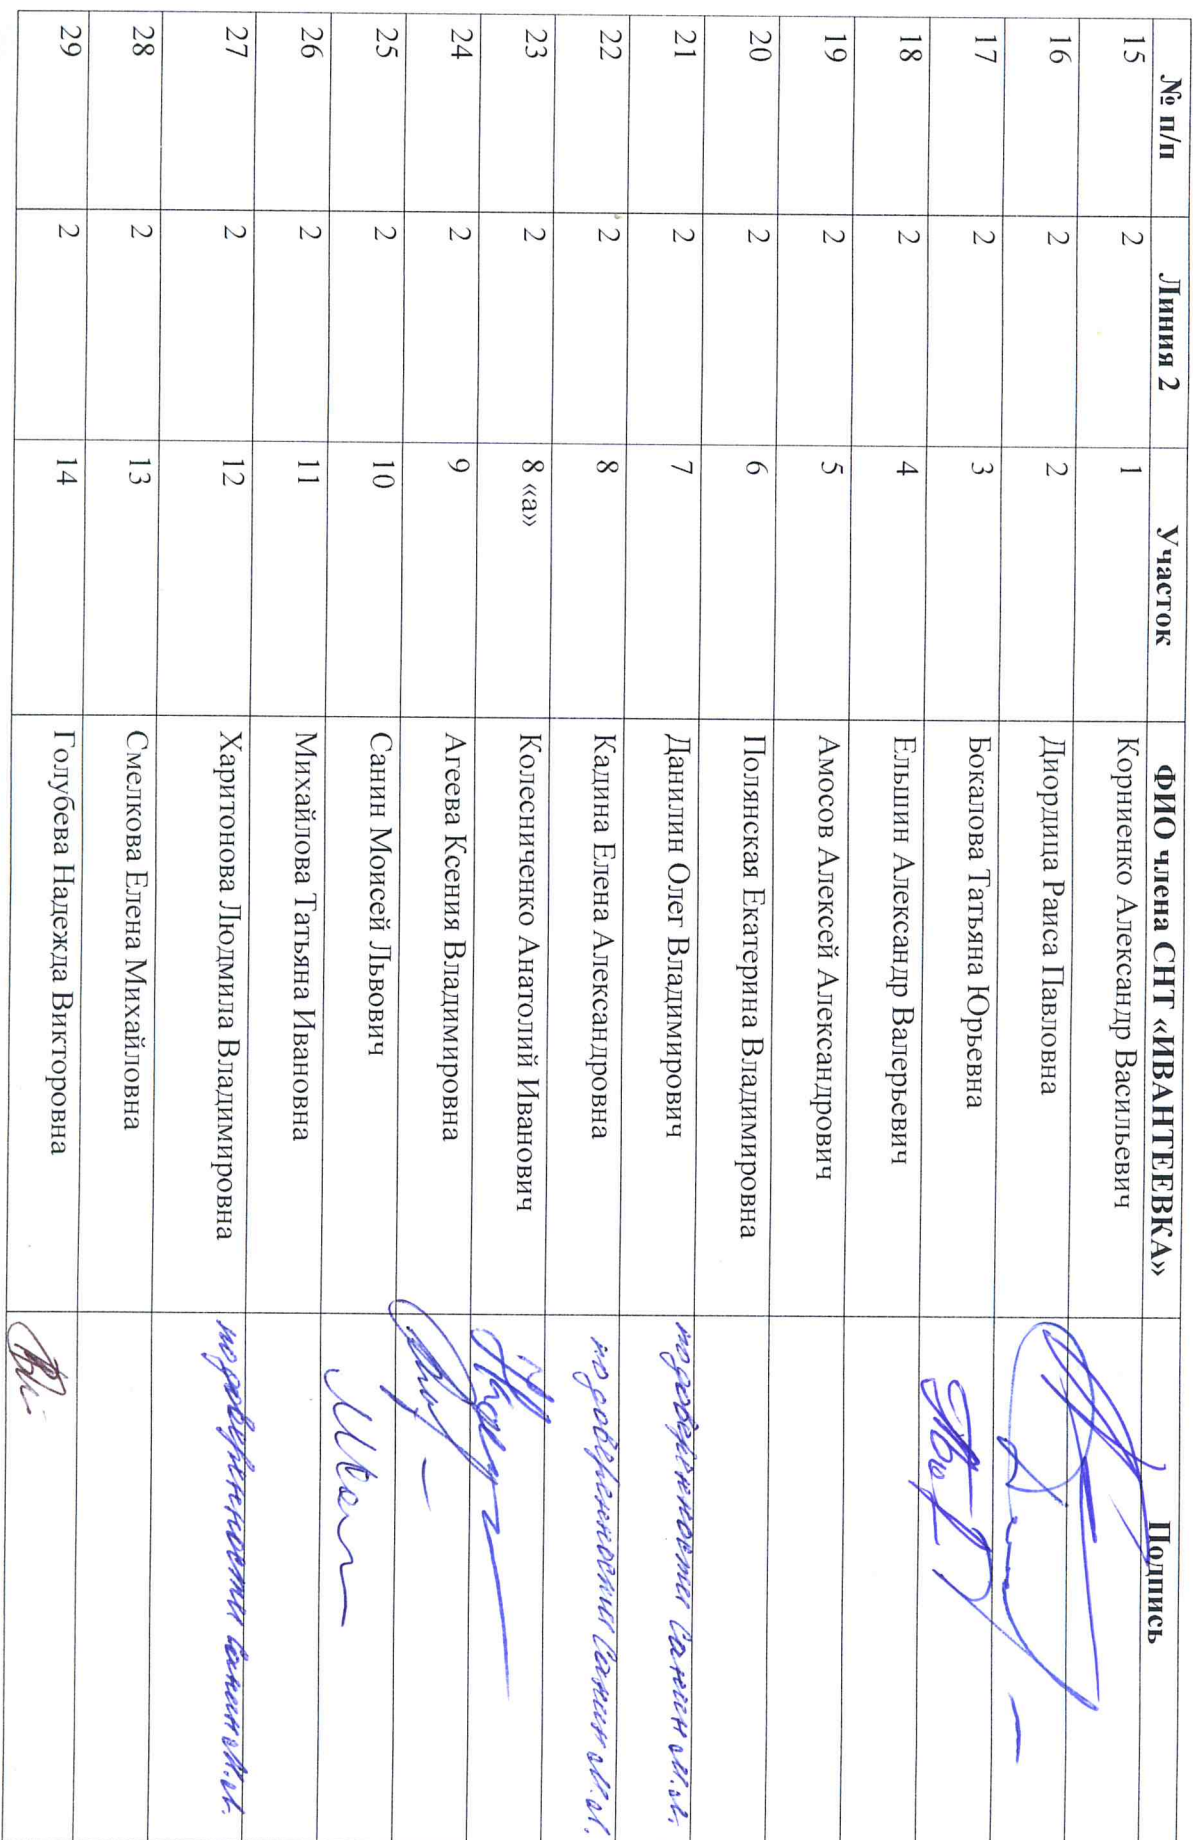 № п/п Линия 2 Участок ФИО члена СНТ «ИВАНТЕЕВКА» Подпись
15 2 1 Корниенко Александр Васильевич
16 2 2 Диордица Раиса Павловна
17 2 3 Бокалова Татьяна Юрьевна
18 2 4 Ельшин Александр Валерьевич
19 2 5 Амосов Алексей Александрович
20 2 6 Полянская Екатерина Владимировна
21 2 7 Данилин Олег Владимирович по доверенности Санин М.Л.
22 2 8 Кадина Елена Александровна по доверенности Санин М.Л.
23 2 8 «а» Колесниченко Анатолий Иванович
24 2 9 Агеева Ксения Владимировна
25 2 10 Санин Моисей Львович
26 2 11 Михайлова Татьяна Ивановна
27 2 12 Харитонова Людмила Владимировна по доверенности Санин М.Л.
28 2 13 Смелкова Елена Михайловна
29 2 14 Голубева Надежда Викторовна